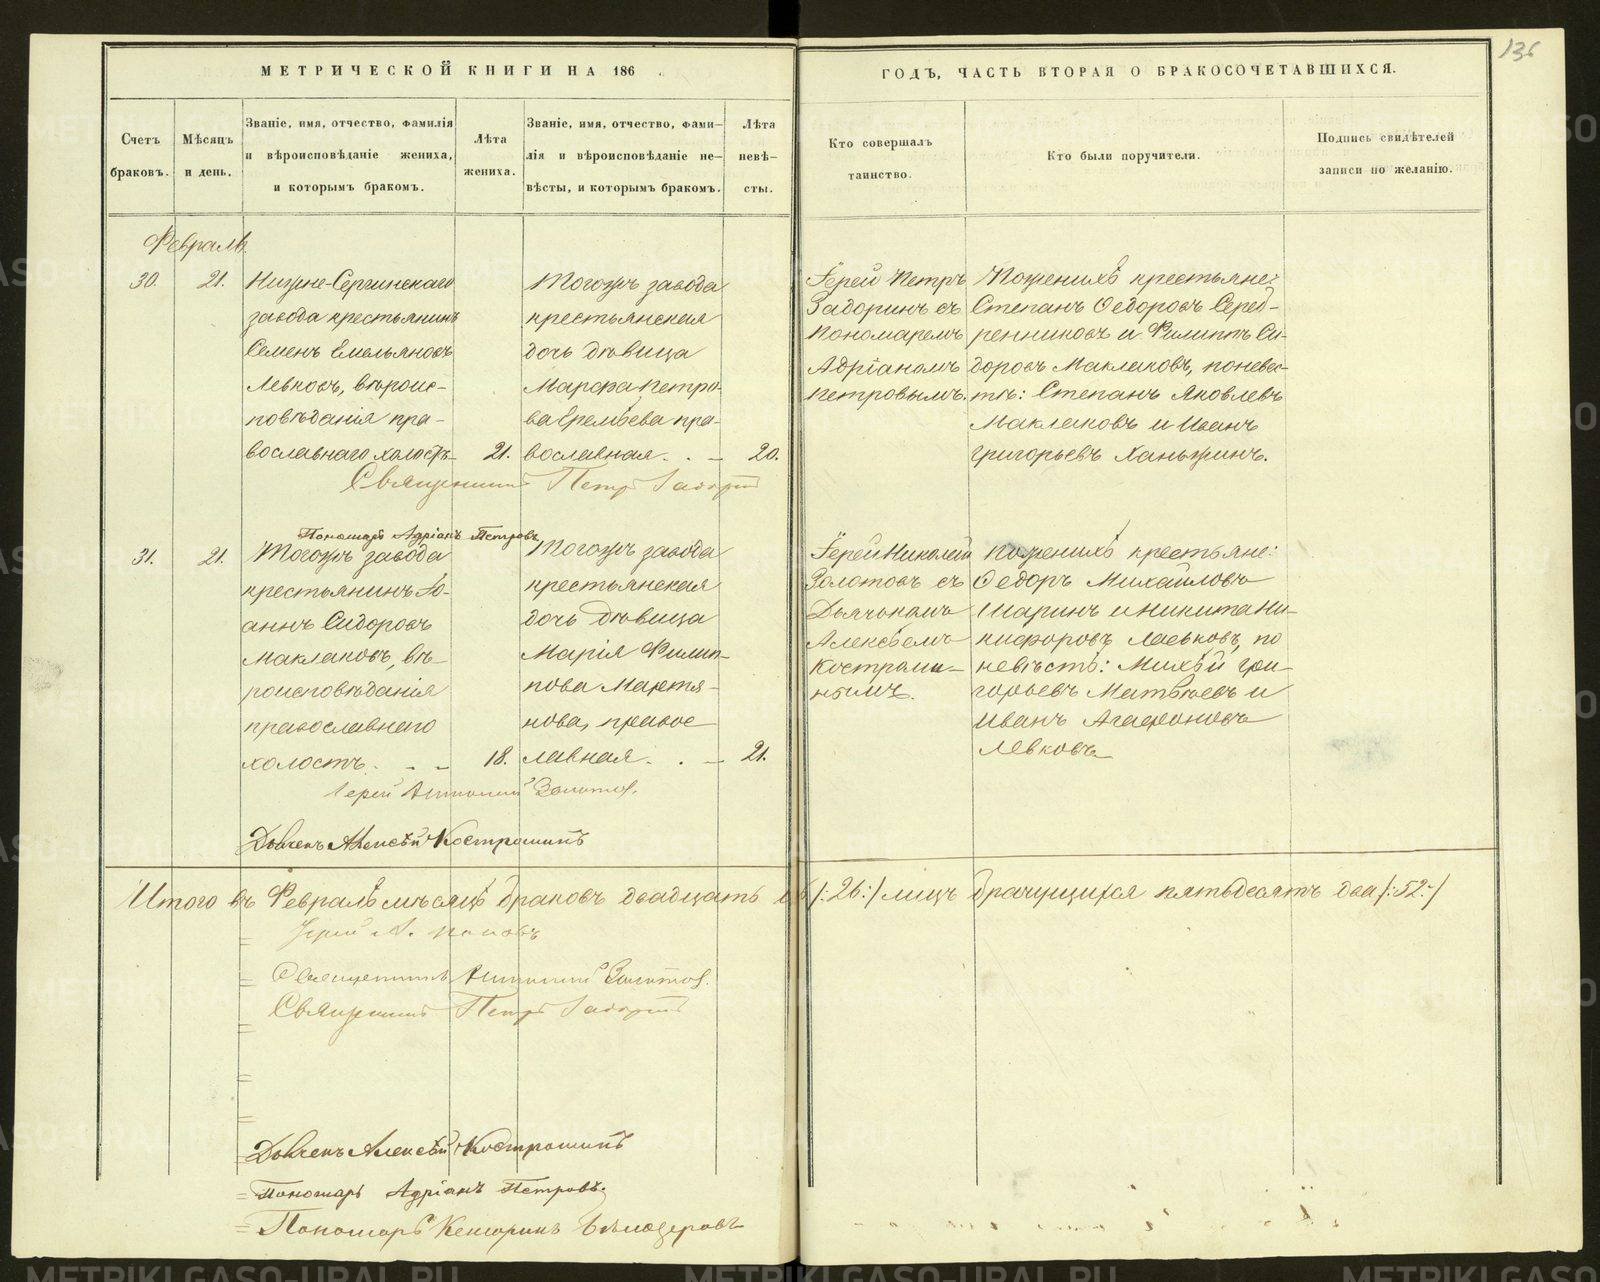 136
МЕТРИЧЕСКОЙ КНИГИ НА 186
ГОДЪ, ЧАСТЬ ВТОРАЯ О БРАКОСОЧЕТАВШИХСЯ.
Счетъ
браковъ.
Мѣсяцъ
и день.
Званіе, имя, отчество, фамилія
и вѣроисповѣданіе жениха,
и которымъ бракомъ.
Лѣта
жениха.
Званіе, имя, отчество, фами-
лія и вѣроисповѣданіе не-
вѣсты, и которымъ бракомъ.
Лѣта
невѣ-
сты.
Кто совершалъ
таинство.
Кто были поручители.
Подпись свидѣтелей
записи по желанію.
Февраль.
30.
21.
Нижне-Сергинскаго
завода крестьянинъ
Семенъ Емельяновъ
Левковъ, вѣроис-
повѣданія пра-
вославнаго холостъ
21.
Тогожъ завода
крестьянская
дочь дѣвица
Марфа Петро-
ва Еремѣева пра-
вославная
20.
Іерей Петръ
Задоринъ съ
Пономаремъ
Адріаномъ
Петровымъ.
По женихѣ крестьяне:
Степанъ Федоровъ Сереб-
ренниковъ и Филиппъ Си-
доровъ Маклаковъ, по невѣс-
тѣ: Степанъ Яковлевъ
Маклаковъ и Иванъ
Григорьевъ Ханьжинъ.
Священникъ Петръ Задоринъ
Пономарь Адріанъ Петровъ
31.
21.
Тогожъ завода
крестьянинъ Іо-
аннъ Сидоровъ
Маклаковъ, вѣ-
роисповѣданія
православнаго
холостъ.
18.
Тогожъ завода
крестьянская
дочь дѣвица
Марія Филип-
пова Мартя-
нова, правос-
лавная.
21.
Іерей Николай
Золотовъ съ
Дьячкомъ
Алексѣемъ
Костроми-
нымъ.
По женихѣ крестьяне:
Федоръ Михайловъ
Шаринъ и Никита Ни-
кифоровъ Левковъ, по
невѣстѣ: Михѣй Гри-
горьевъ Матвѣевъ и
Иванъ Агафоновъ
Левковъ
Іерей Антоній Золотовъ.
Дьячекъ Алексѣй Костроминъ
Итого въ Февралѣ мѣсяцѣ браковъ двадцать /:26:/ лицъ брачущихся пятьдесятъ два /:52:/
Іерей А. Поповъ
Священникъ Антоній Золотовъ.
Священникъ Петръ Задоринъ
Дьячекъ Алексѣй Костроминъ
Пономарь Адріанъ Петровъ
Пономарь Кенсоринъ Бѣлозеровъ
METRIKI.GASO-URAL.RU